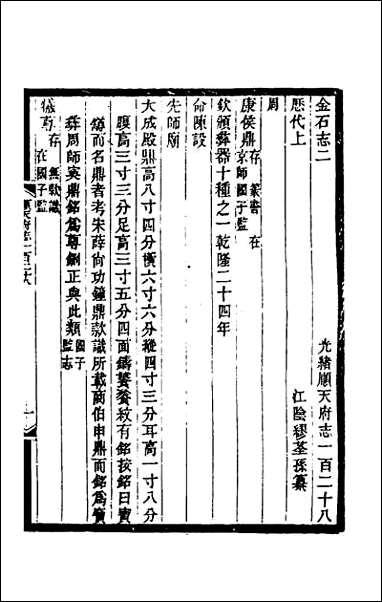 光緒順天府志一百二十八
金石志二
江陰繆荃孫纂
歷代上
周
康侯鼎存篆書在京師國子監
欽頒彝器十種之一乾隆二十四年
命陳設
先師廟
大成殿鼎高八寸四分橫六寸六分縱四寸三分耳高一寸八分
腹高三寸三分足高三寸五分四面鑄饕餮紋有銘按銘曰寶
尊而名鼎者考朱薛尚功鐘鼎款識所載商伯申鼎而銘爲寶
彝周師㝨鼎銘爲尊銅正與此類國子監志
犧尊存無款識在國子監